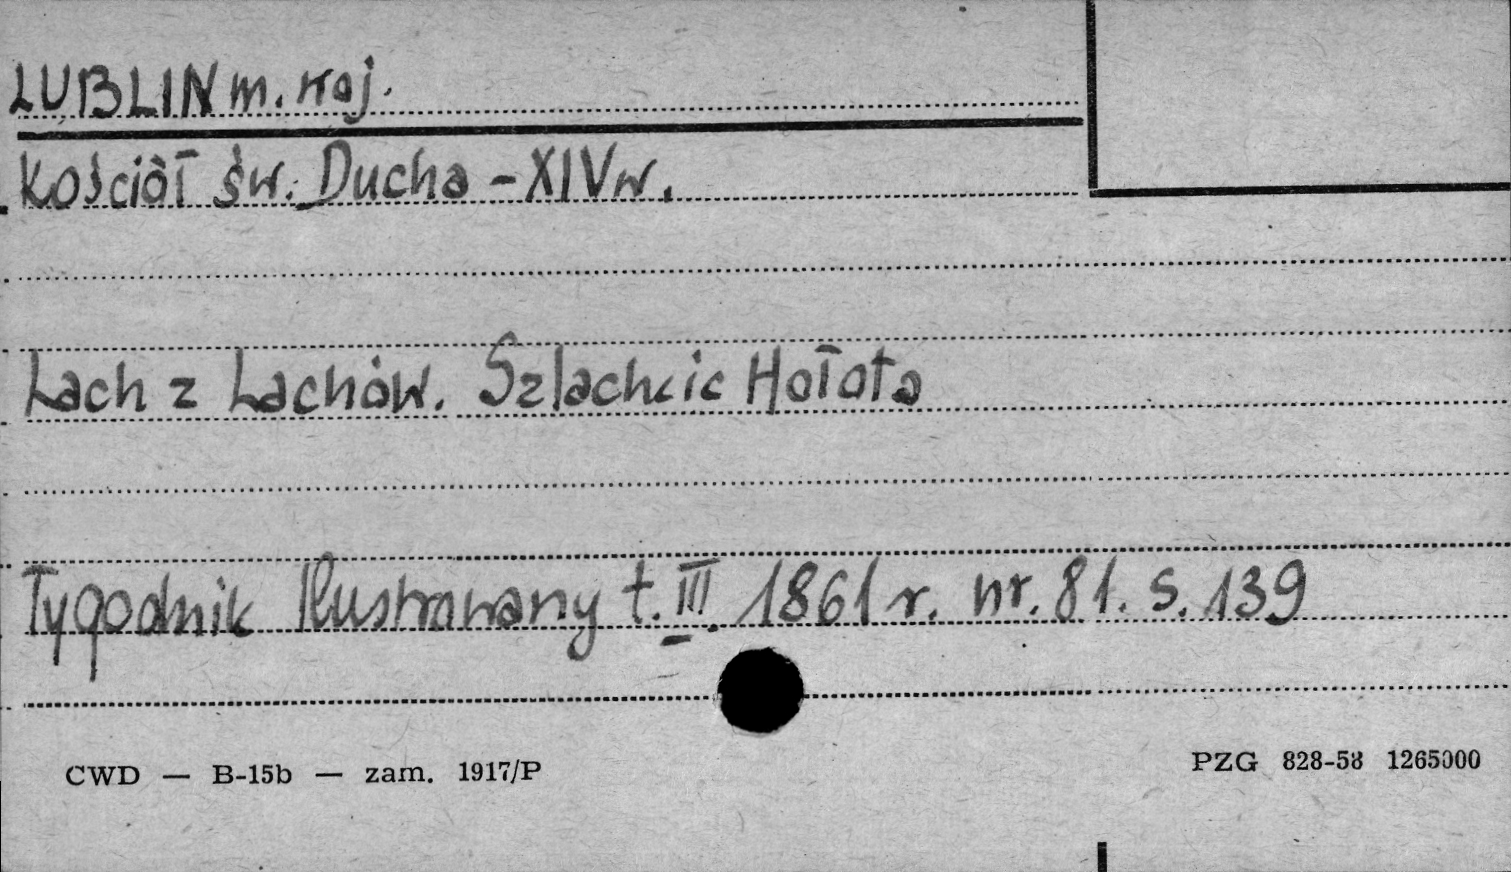 LUBLIN m. woj.
Kościół św. Ducha - XIV w.
Lach z Lachów. Szlachcic Hołota
Tygodnik Ilustrowany t. III. 1861 r. nr. 81. s. 139
CWD — B-15b — zam. 1917/P
PZG 828-58 1265000